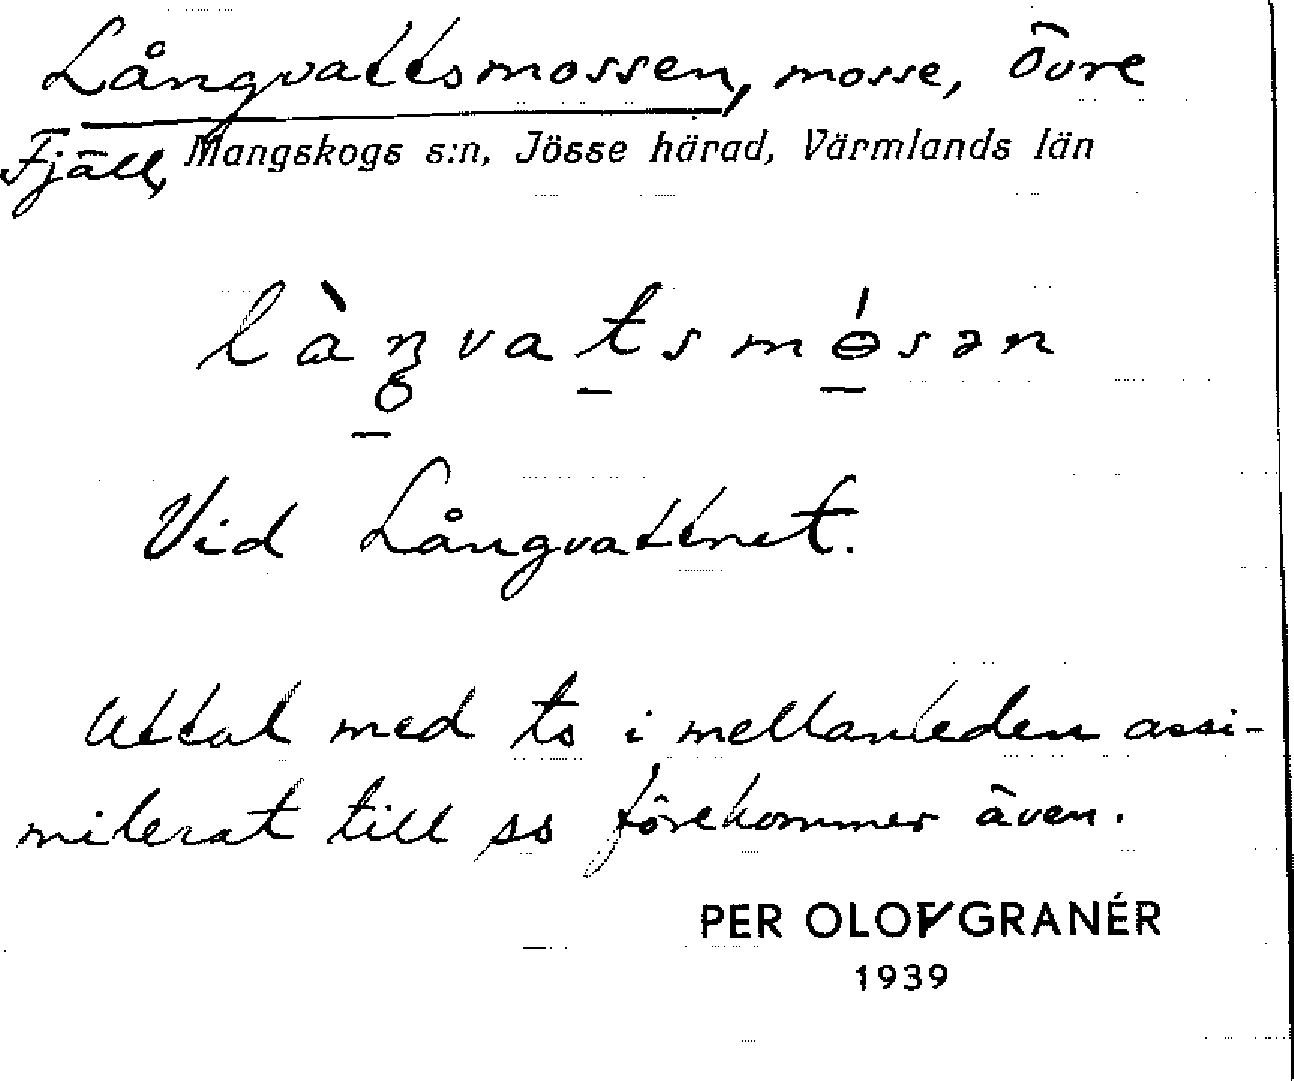 Långvattsmossen, mosse, Övre
Fjäll, Mangskogs s:n, Jösse härad, Värmlands län
Vid Långvattnet.
Uttal med ts i mellanleden assi-
milerat till ss förekommer även.
PER OLOF GRANÉR
1939